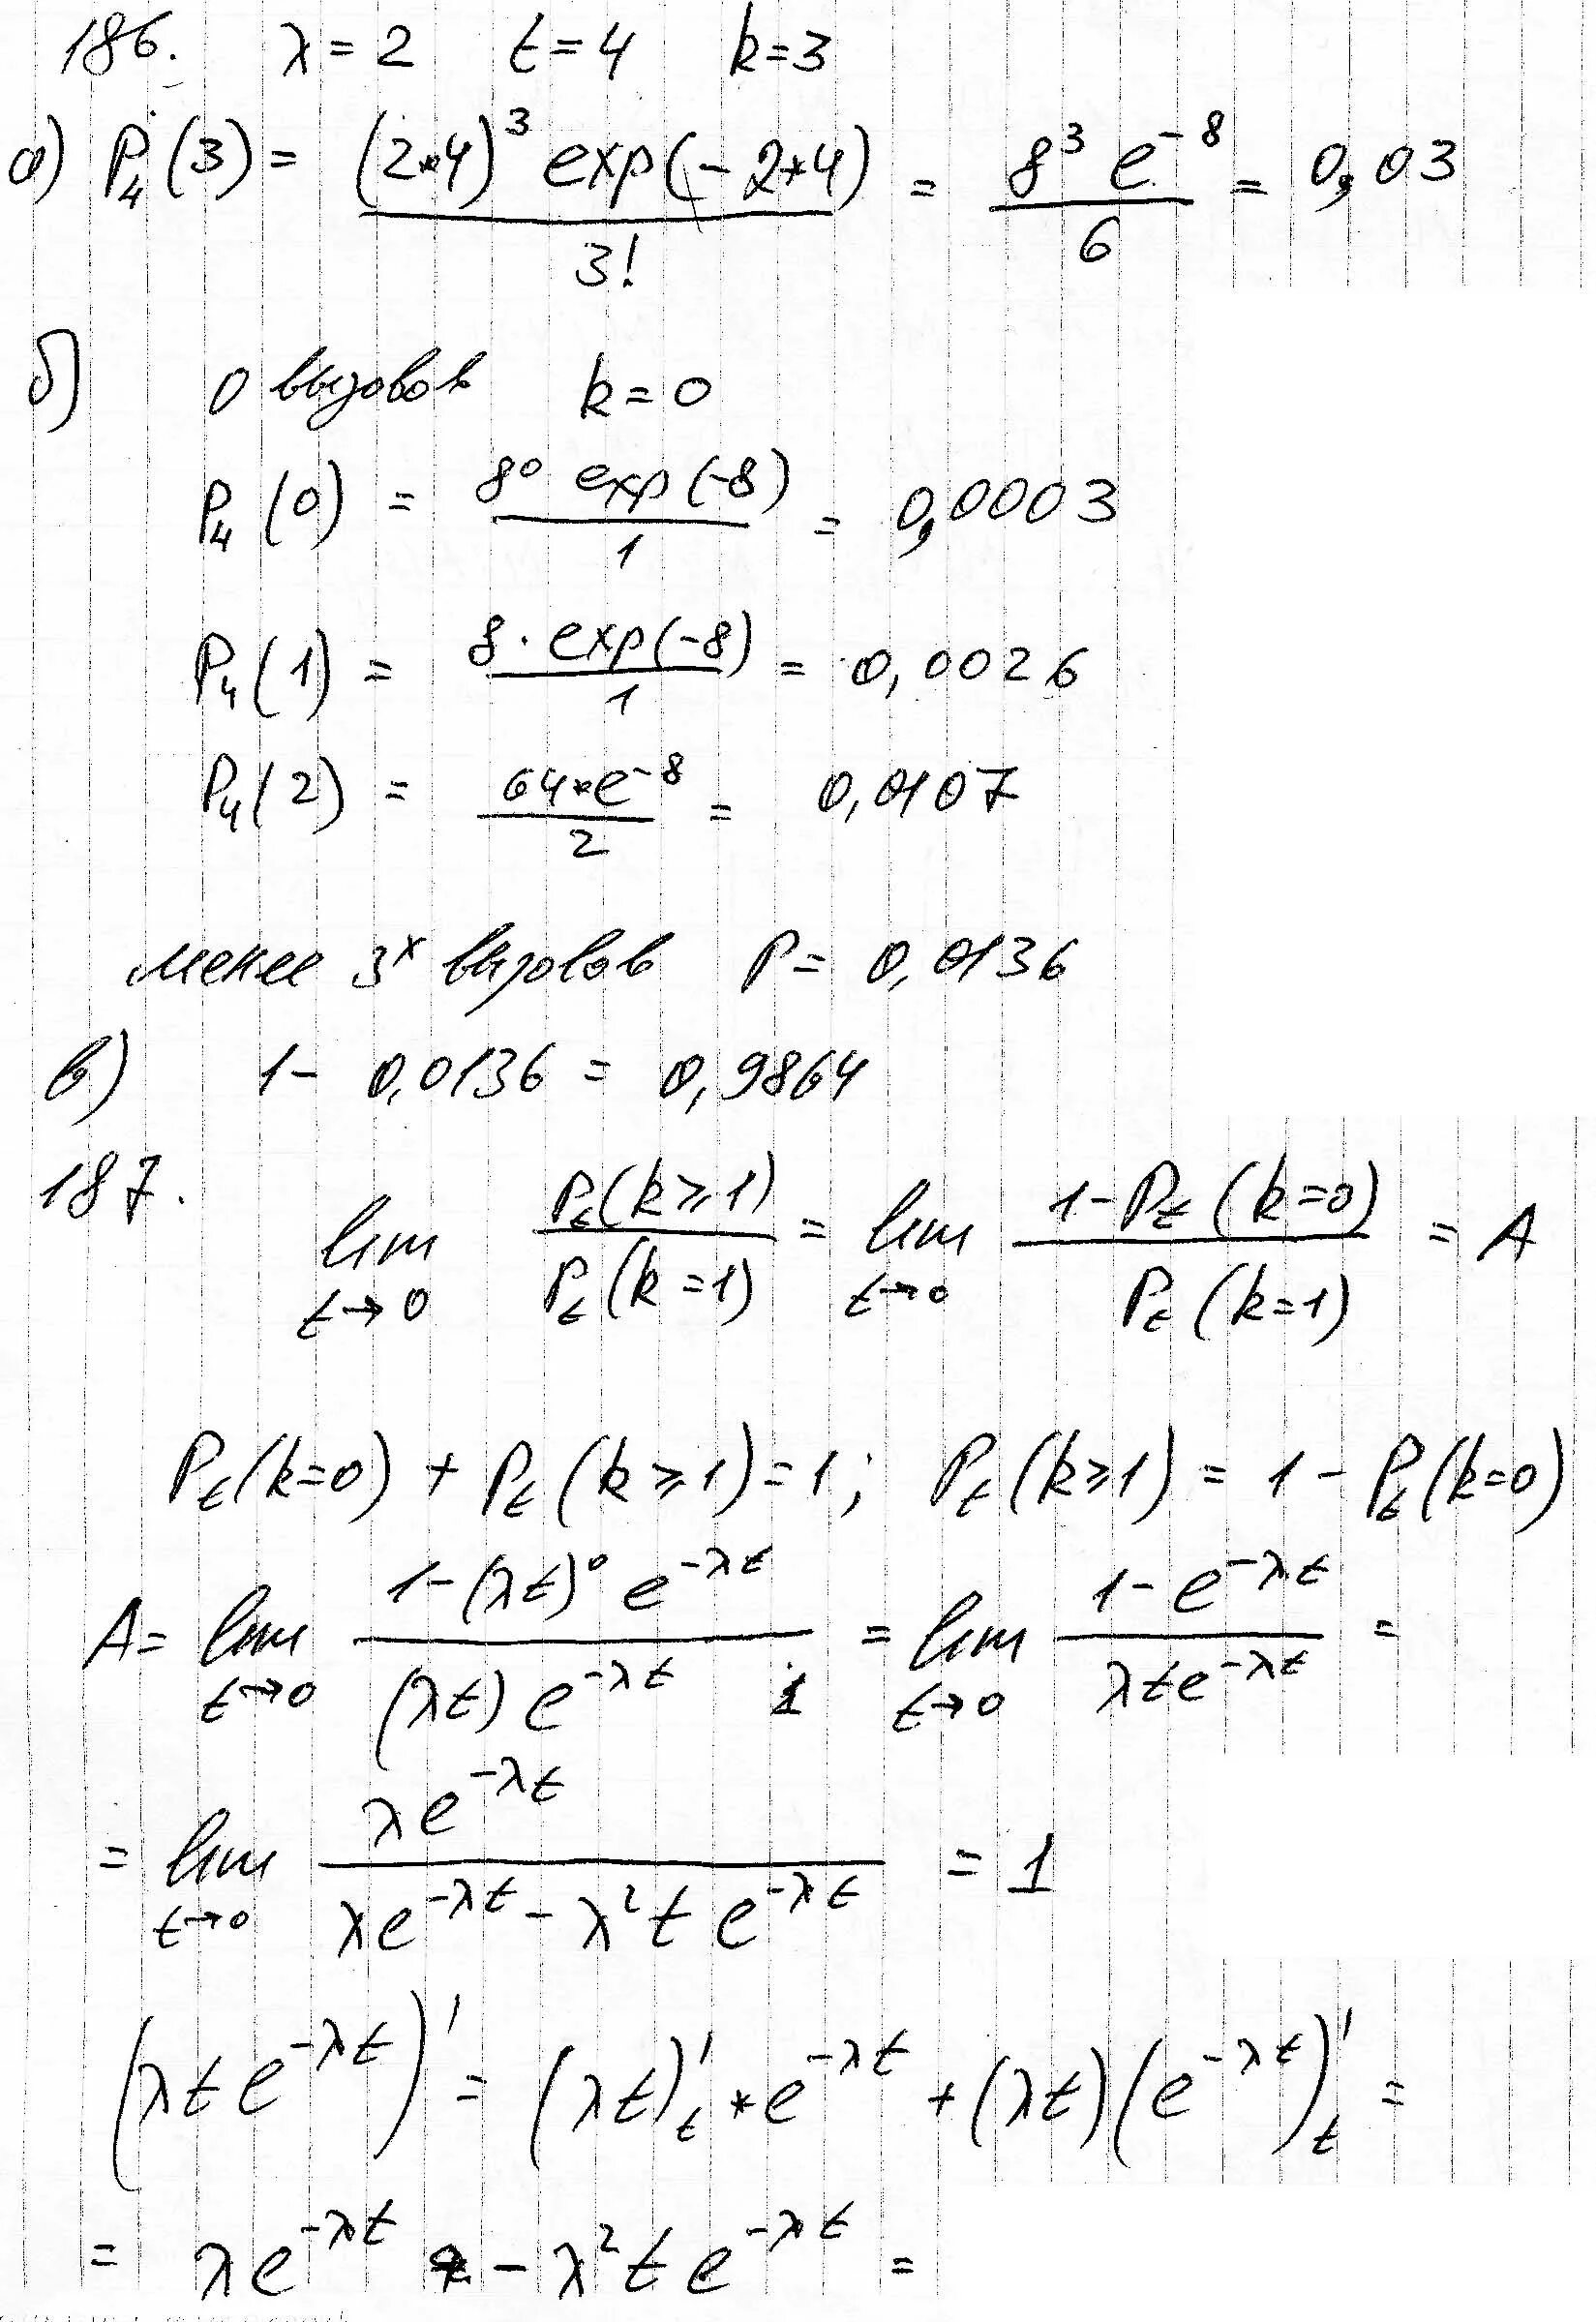 186. λ = 2 t = 4 k = 3
а) P₄(3) = (2*4)³ exp(-2*4) / 3! = 8³ e⁻⁸ / 6 = 0,03
б) 0 вызовов k = 0
P₄(0) = 8⁰ exp(-8) / 1 = 0,0003
P₄(1) = 8 · exp(-8) / 1 = 0,0026
P₄(2) = 64*e⁻⁸ / 2 = 0,0107
менее 3ˣ вызовов P = 0,0136
в) 1 - 0,0136 = 0,9864
187. lim t→0 Pt(k≥1) / Pt(k=1) = lim t→0 1-Pt(k=0) / Pt(k=1) = A
Pt(k=0) + Pt(k≥1) = 1; Pt(k≥1) = 1 - Pt(k=0)
A = lim t→0 1-(λt)⁰ e^-λt / (λt) e^-λt 1 = lim t→0 1-e^-λt / λte^-λt =
= lim t→0 λe^-λt / λe^-λt - λ²t e^-λt = 1
(λt e^-λt)' = (λt)'t * e^-λt + (λt)(e^-λt)'t =
= λe^-λt - λ²t e^-λt =